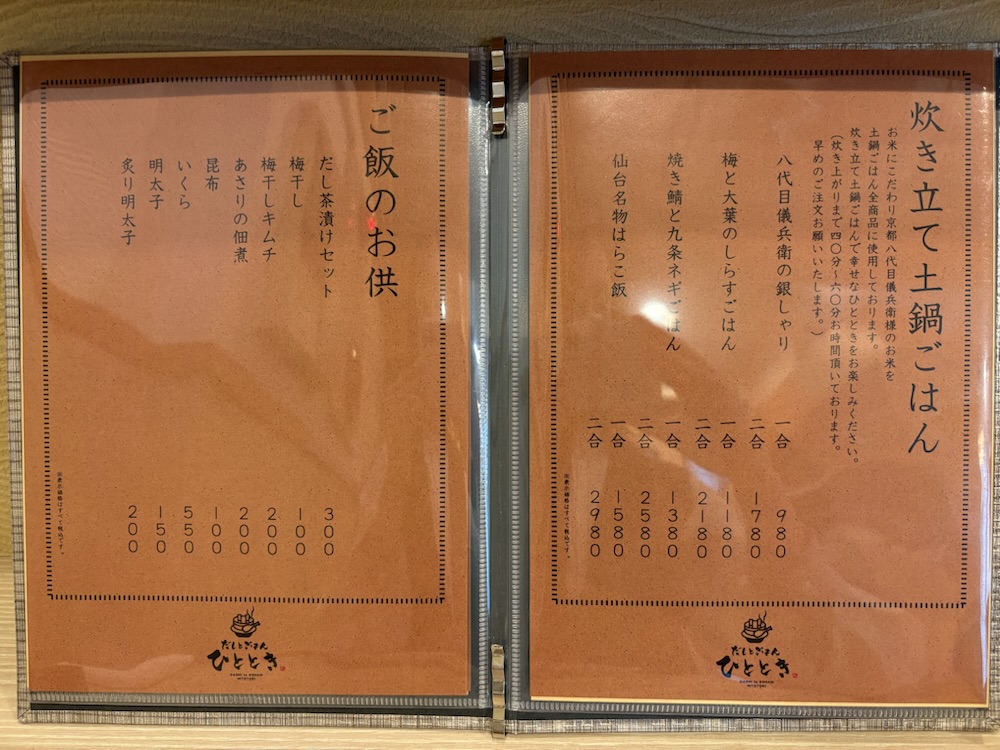 炊き立て土鍋ごはん
お米にこだわり京都八代目儀兵衛様のお米を
土鍋ごはん全商品に使用しております。
炊き立て土鍋ごはんで幸せなひとときをお楽しみください。
(炊き上がりまで四〇分〜六〇分お時間頂いております。
早めのご注文お願いいたします。)
八代目儀兵衛の銀しゃり
一合 980
二合 1780
梅と大葉のしらすごはん
一合 1180
二合 2180
焼き鯖と九条ネギごはん
一合 1380
二合 2580
仙台名物はらこ飯
一合 1580
二合 2980
※表示価格はすべて税込です。
だしとごはん
ひととき
ご飯のお供
だし茶漬けセット 300
梅干し 100
梅干しキムチ 200
あさりの佃煮 200
昆布 100
いくら 550
明太子 150
炙り明太子 200
※表示価格はすべて税込です。
だしとごはん
ひととき